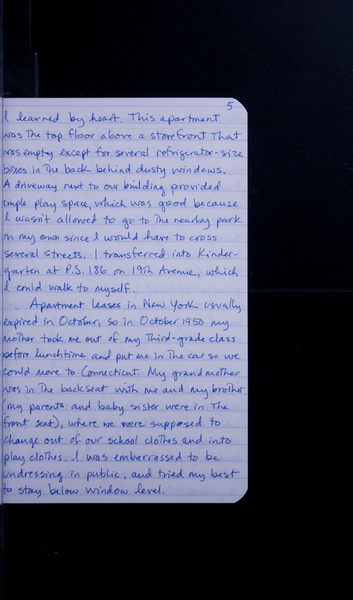 5
I learned by heart. This apartment
was the top floor above a storefront that
was empty except for several refrigerator-size
boxes in the back behind dusty windows.
A driveway next to our building provided
ample play space, which was good because
I wasn't allowed to go to the nearby park
on my own since I would have to cross
several streets. I transferred into Kinder-
garten at P.S. 186 on 19th Avenue, which
I could walk to myself.
Apartment leases in New York usually
expired in October, so in October 1950 my
mother took me out of my third-grade class
before lunchtime and put me in the car so we
could move to Connecticut. My grandmother
was in the backseat with me and my brother
(my parents and baby sister were in the
front seat), where we were supposed to
change out of our school clothes and into
play clothes. I was embarrassed to be
undressing in public, and tried my best
to stay below window level.